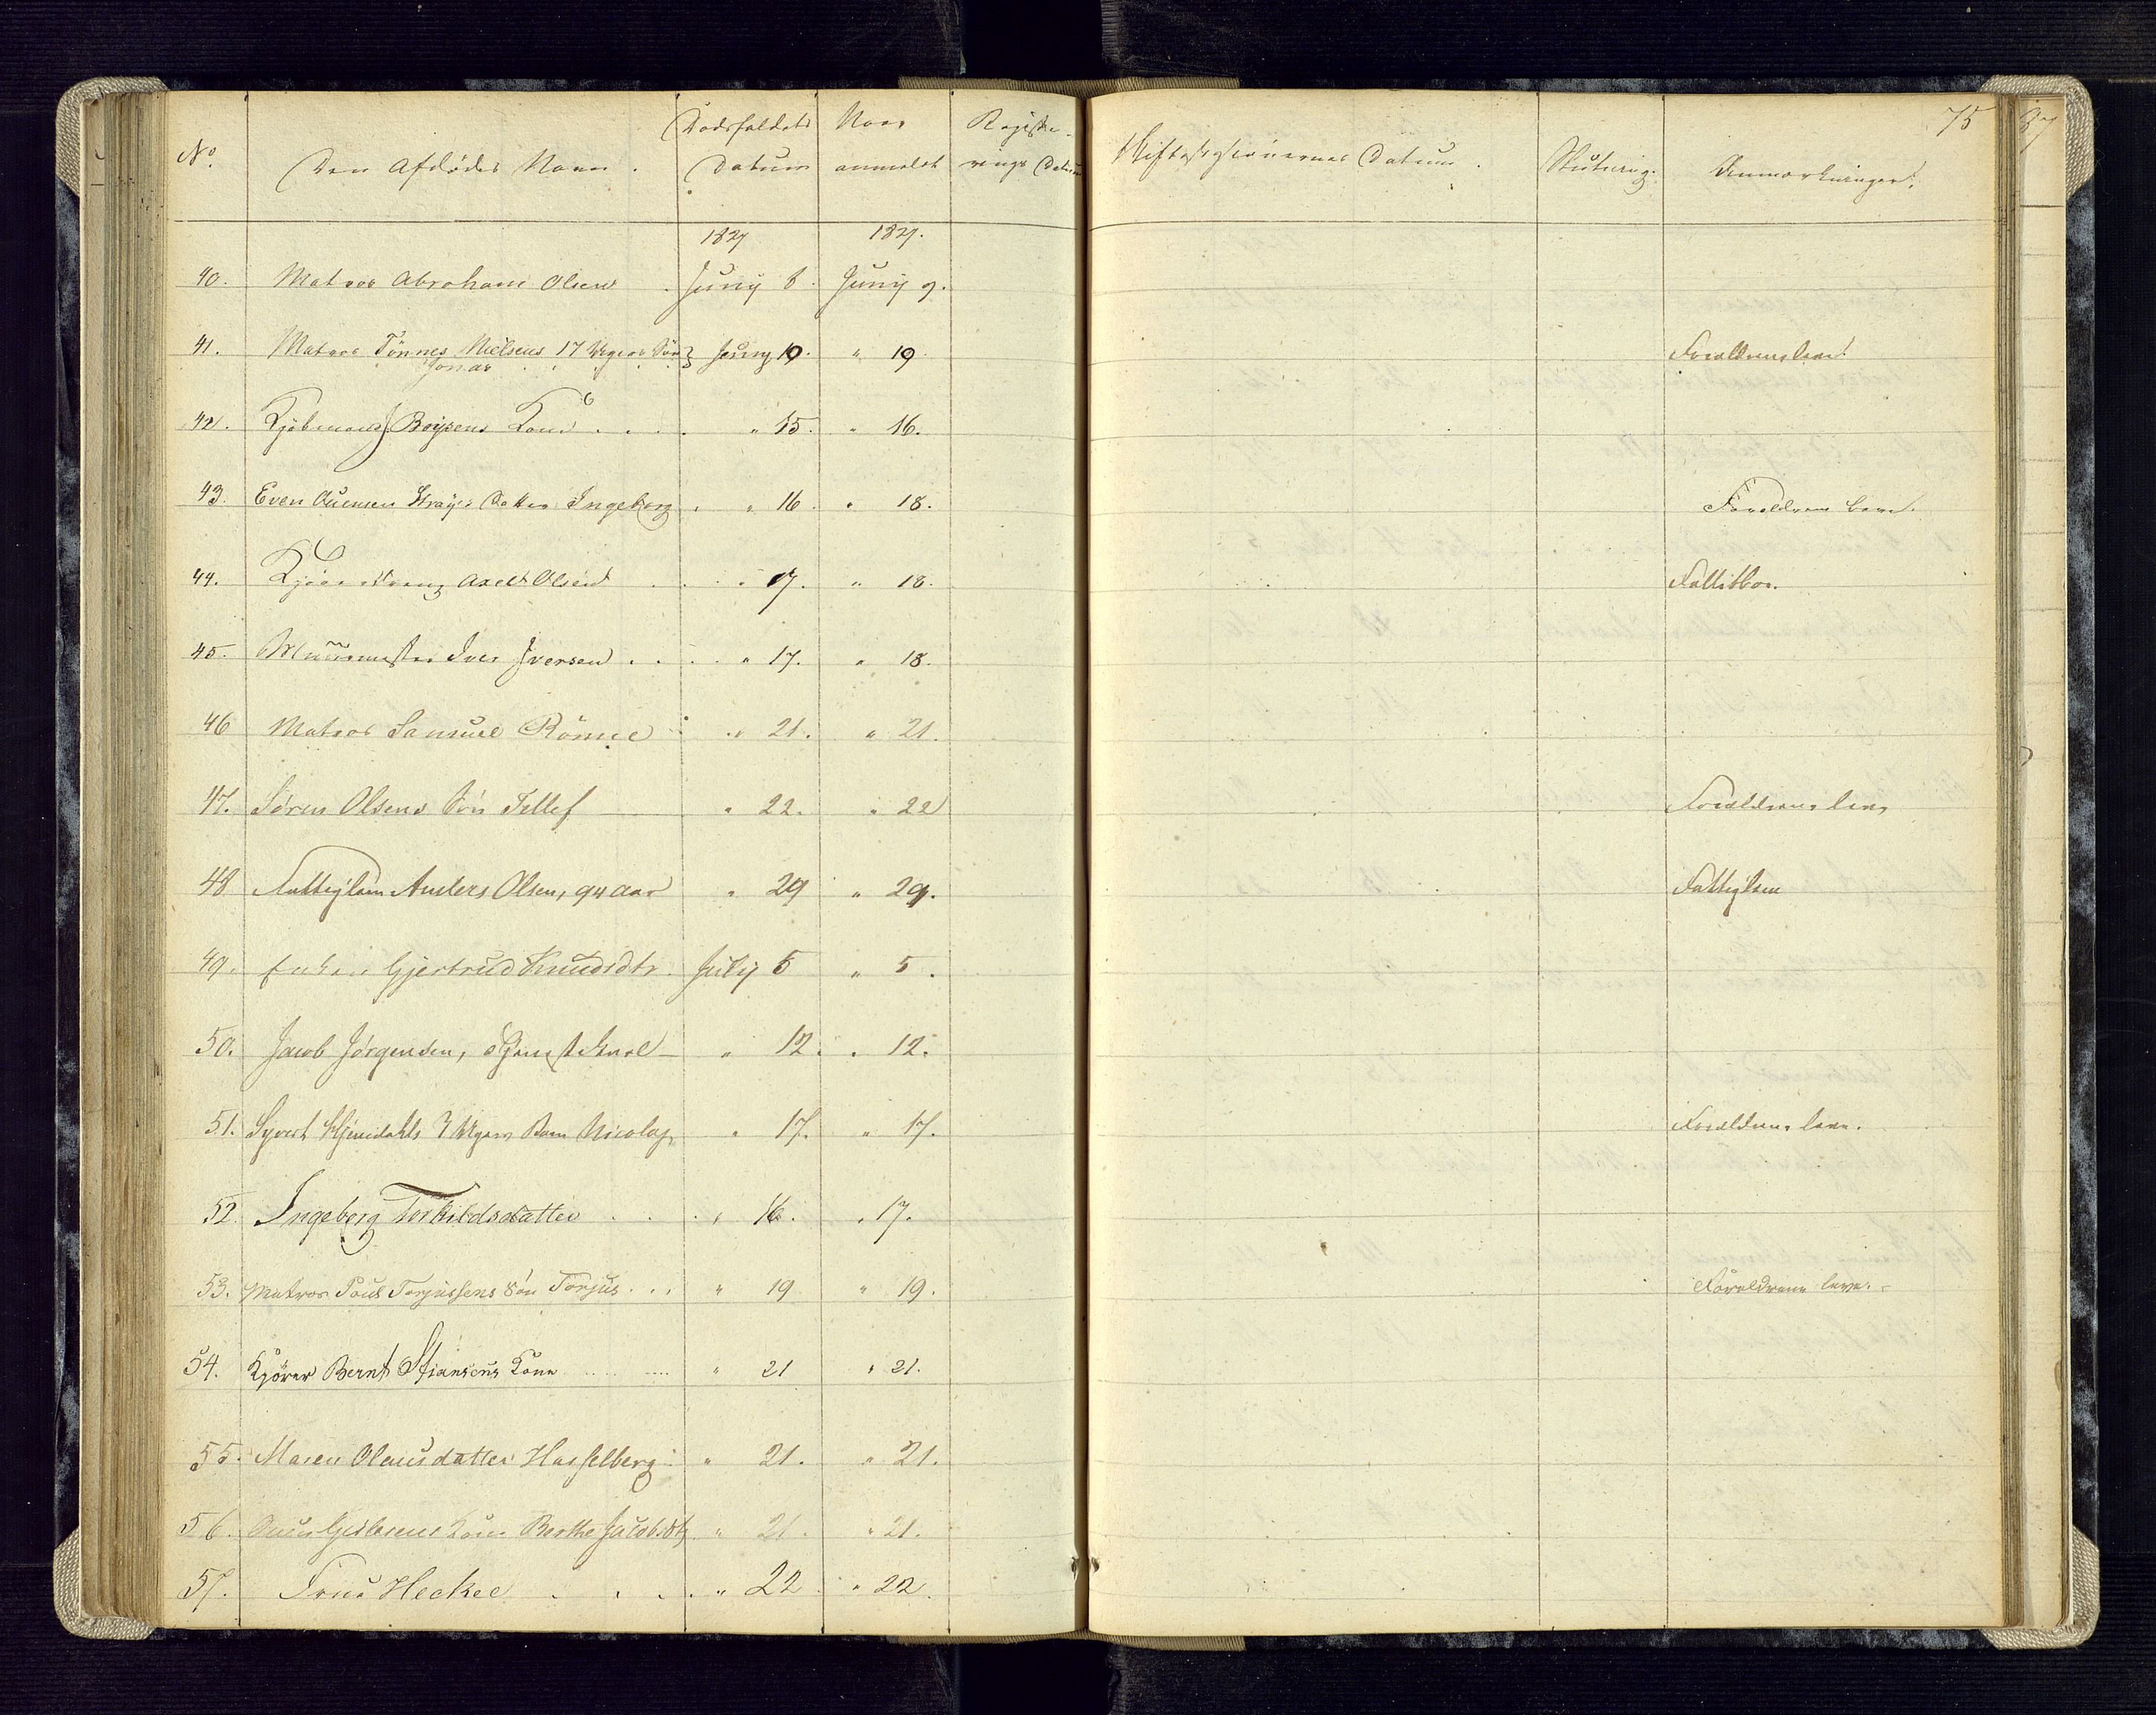 75
No. Den Afdødes Navn. Dødsfaldets Datum Naar anmeldt Registerings Datum Skiftesessionernes Datum. Slutning. Anmærkninger.
1827 1827.
40. Matros Abraham Olsen Juny 8. Juny 9.
41. Matros Tönnes Nielsens 17 Ugers Sön Juny 10. " 19. Forældrene leve.
Jonas
42. Kjøbmand J Boysens Kone . . . " 15. " 16.
43. Even Evensen Strays Datter Ingeborg . " 16. " 18. Forældrene leve.
44. Axel Olsen . . . " 17. " 18. Fallitboe.
45. Muurmester Iver Iversen . . . " 17. " 18.
46 Matros Samuel Römie " 21. " 21.
47. Sören Olsens Sön Tellef " 22. " 22 Forældrene leve
48 Fattiglem Anders Olsen, 94 Aar " 29 " 29. Fattiglem
49. Enken Gjertrud Knudsdtr. July 5 " 5.
50. Jacob Jørgensen, " 12. " 12.
51. Syvert 3 Ugers Barn Nicolay " 17. " 17. Forældrene leve.
52. Ingeborg Torkildsdatter . . . " 16. " 17.
53. Matros Poul Torjussens Sön Torjus . . . " 19 " 19. Forældrene leve.
54. Kjörer Bernt Stiansens Kone " 21 " 21.
55. Maren Olausdatter Hasselberg " 21. " 21.
56. Kone Berthe Jacobsdtr " 21. " 21.
57. Frue Heckel . . . " 22. " 22.